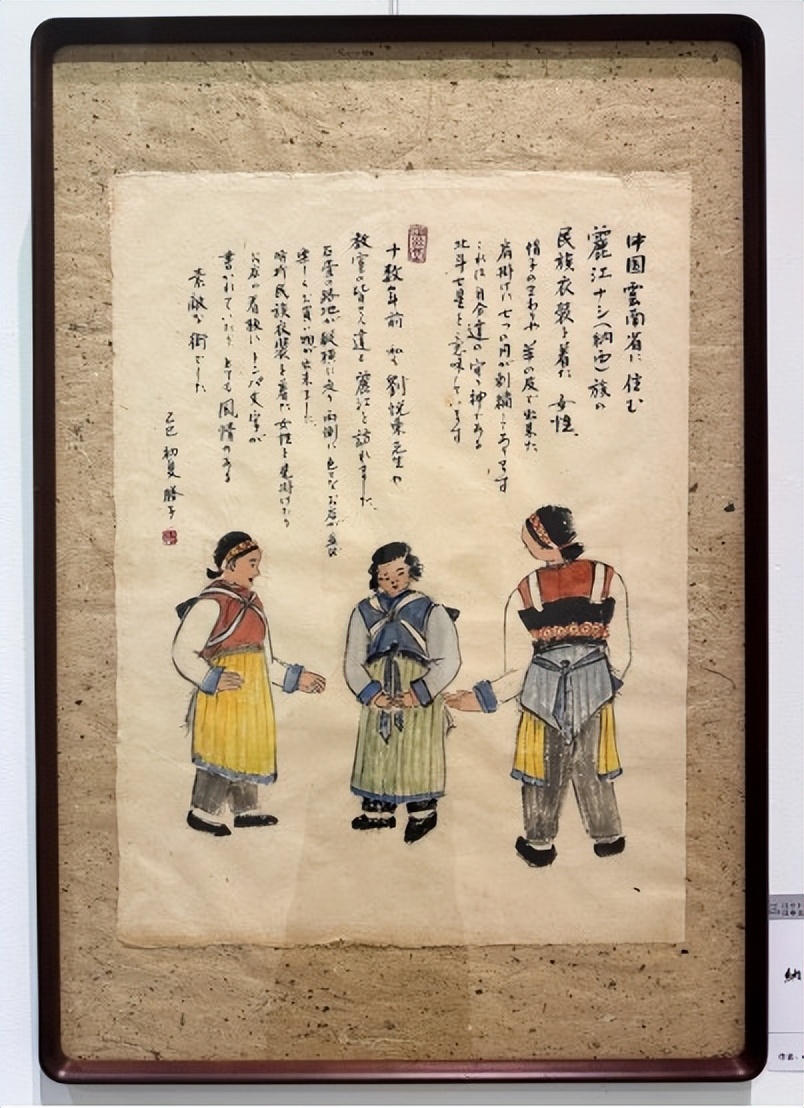 中国雲南省に住む
麗江ナシ(納西)族の
民族衣裳を着た女性。
帽子のまわりや羊の皮で出来た
肩掛けに七つの円が刺繍してあります
これは自分達の守り神である
北斗七星を意味しています
十数年前 劉悦来先生や
教室の皆さん達と麗江を訪れました。
石畳の路地が縦横に走り両側に色々なお店が並び
楽しくお買い物が出来ました。
時折民族衣裳を着た女性を見掛けたり
お店の看板にトンパ文字が
書かれていたりとても風情のある
素敵な街でした
乙巳 初夏 勝子
納
作者: